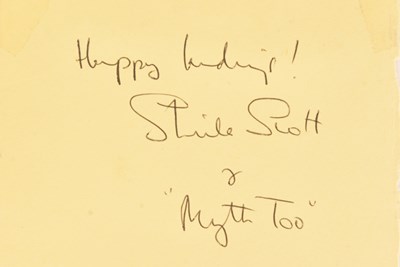 Happy landings!
Sheila Scott
&
"Myth Too"